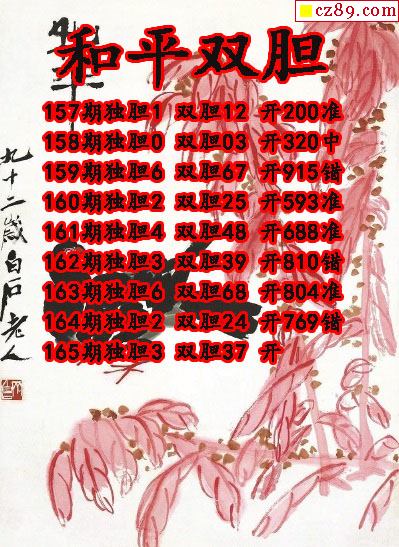 cz89.com
和平双胆
157期独胆1 双胆12 开200准
158期独胆0 双胆03 开320中
159期独胆6 双胆67 开915错
160期独胆2 双胆25 开593准
161期独胆4 双胆48 开688准
162期独胆3 双胆39 开810错
163期独胆6 双胆68 开804准
164期独胆2 双胆24 开769错
165期独胆3 双胆37 开
九十二岁白石老人